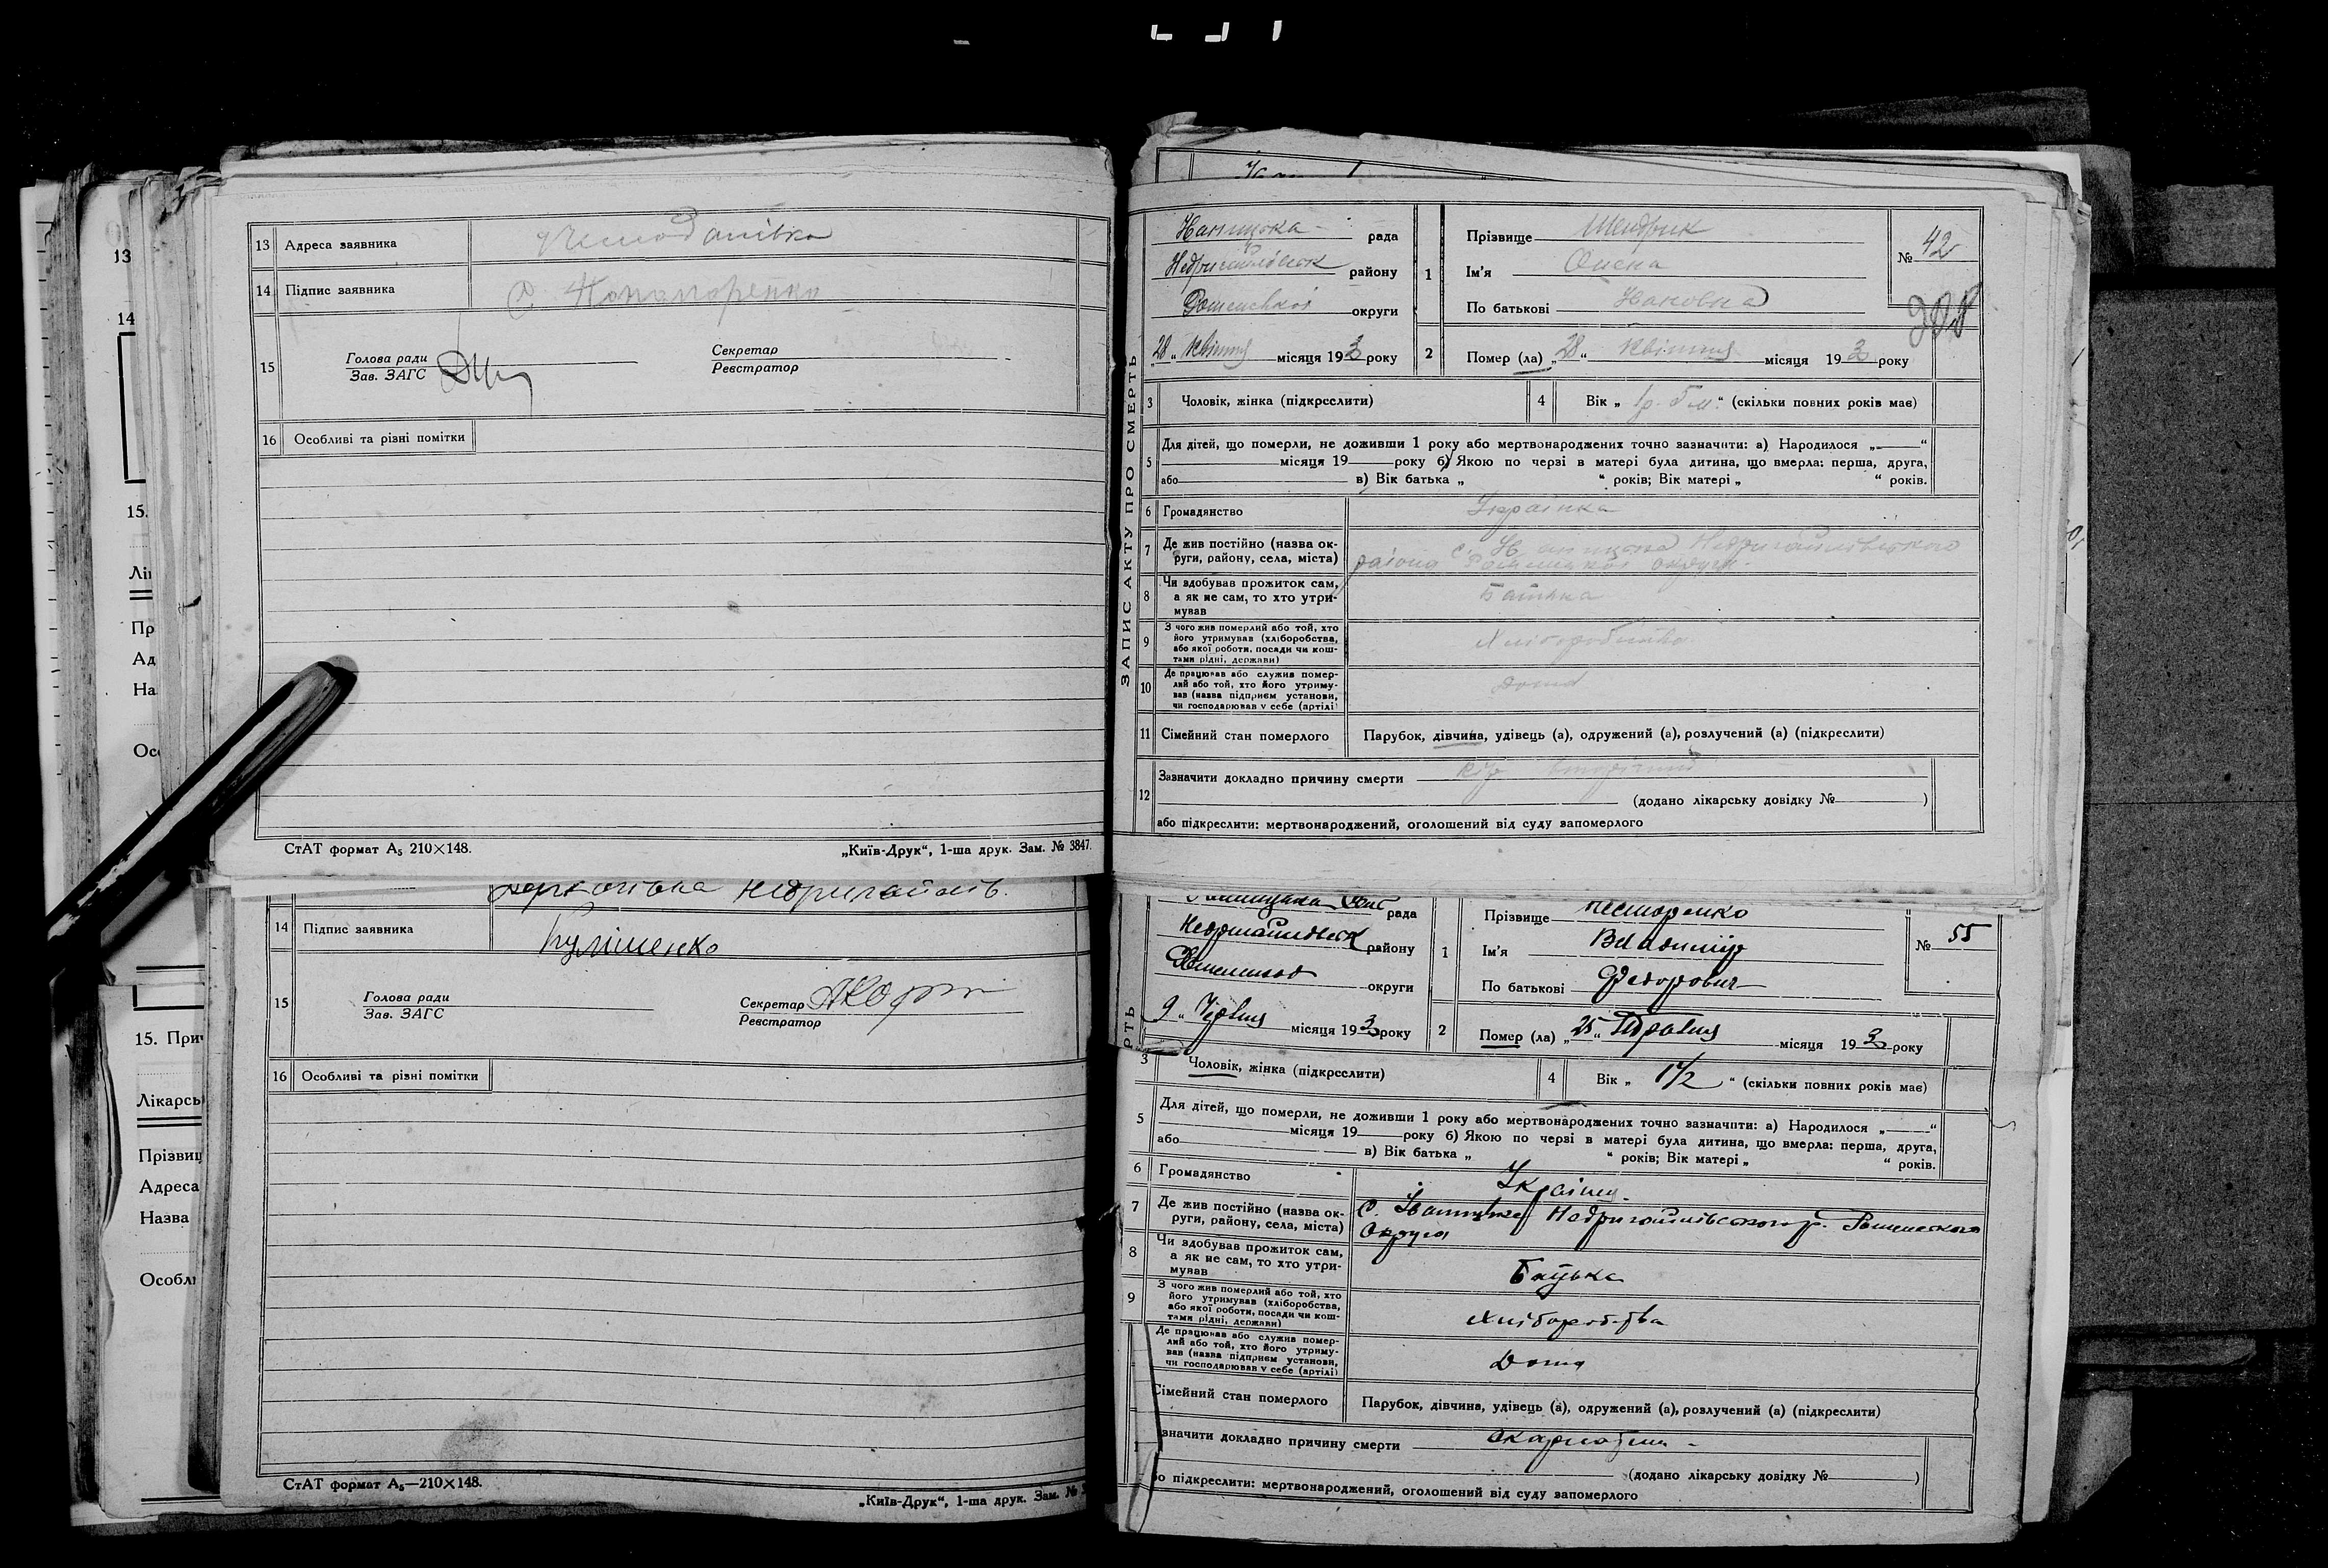 13 Адреса заявника
14 Підпис заявника С.
15 Голова ради Секретар
Зав. ЗАГС Реєстратор
16 Особливі та різні помітки
СтАТ формат А₅ 210×148. „Київ-Друк“, 1-ша друк. Зам. № 3847.
Недригайлів.
14 Підпис заявника Кулішенко
15 Голова ради Секретар
Зав. ЗАГС Реєстратор
16 Особливі та різні помітки
СтАТ формат А₅—210×148. „Київ-Друк“, 1-ша друк. Зам. №
13
14
15.
Лі
Пр
Ад
На
Ос
15. При
Лікарсь
Прізвищ
Адреса
Назва
Особл
ЗАПИС АКТУ ПРО СМЕРТЬ
рада
району
Роменської округи
28 „ Квітня місяця 193 року
1 Прізвище Шендрик № 42
Ім'я Олена
По батькові
2 Помер (ла) „ 28 “ Квітня місяця 193 року
3 Чоловік, жінка (підкреслити) 4 Вік „ 1р. 5 м. “ (скільки повних років має)
5 Для дітей, що померли, не доживши 1 року або мертвонароджених точно зазначити: а) Народилося „ “
місяця 19 року б) Якою по черзі в матері була дитина, що вмерла: перша, друга,
або в) Вік батька „ “ років; Вік матері „ “ років.
6 Громадянство Українка
7 Де жив постійно (назва ок-
руги, району, села, міста) с. Недригайлівського
района Роменської округи
8 Чи здобував прожиток сам,
а як не сам, то хто утри-
мував Батька
9 З чого жив померлий або той, хто
його утримував (хліборобства,
або якої роботи, посади чи кош-
тами рідні, держави) Хліборобства
10 Де працював або служив помер-
лий або той, хто його утриму-
вав (назва підприєм установи,
чи господарював у себе (артілі) Дома
11 Сімейний стан померлого Парубок, дівчина, удівець (а), одружений (а), розлучений (а) (підкреслити)
12 Зазначити докладно причину смерти Кір
(додано лікарську довідку № )
або підкреслити: мертвонароджений, оголошений від суду запомерлого
рада
району
округи
9 „ Червня місяця 193 року
1 Прізвище Нестеренко № 55
Ім'я Владимир
По батькові Федорович
2 Помер (ла) „ 25 “ Травня місяця 193 року
РТЬ
3 Чоловік, жінка (підкреслити) 4 Вік „ 1½ “ (скільки повних років має)
5 Для дітей, що померли, не доживши 1 року або мертвонароджених точно зазначити: а) Народилося „ “
місяця 19 року б) Якою по черзі в матері була дитина, що вмерла: перша, друга,
або в) Вік батька „ “ років; Вік матері „ “ років.
6 Громадянство
7 Де жив постійно (назва ок-
руги, району, села, міста) С. Недригайлівського р. Роменського
Округа
8 Чи здобував прожиток сам,
а як не сам, то хто утри-
мував Батька
9 З чого жив померлий або той, хто
його утримував (хліборобства,
або якої роботи, посади чи кош-
тами рідні, держави) Хліборобства
Де працював або служив помер-
лий або той, хто його утриму-
вав (назва підприєм установи,
чи господарював у себе (артілі) Дома
Сімейний стан померлого Парубок, дівчина, удівець (а), одружений (а), розлучений (а) (підкреслити)
значити докладно причину смерти скарлатина
(додано лікарську довідку № )
бо підкреслити: мертвонароджений, оголошений від суду запомерлого